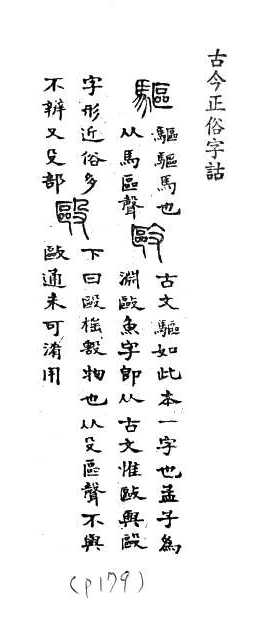 古今正俗字詁
驅
驅驅馬也
从馬區聲
敺
古文驅如此本一字也孟子為
淵敺魚字即从古文惟敺與毆
字形近俗多
不辨又殳部
毆
下曰毆捶毄物也从殳區聲不與
敺通未可淆用
(p179)